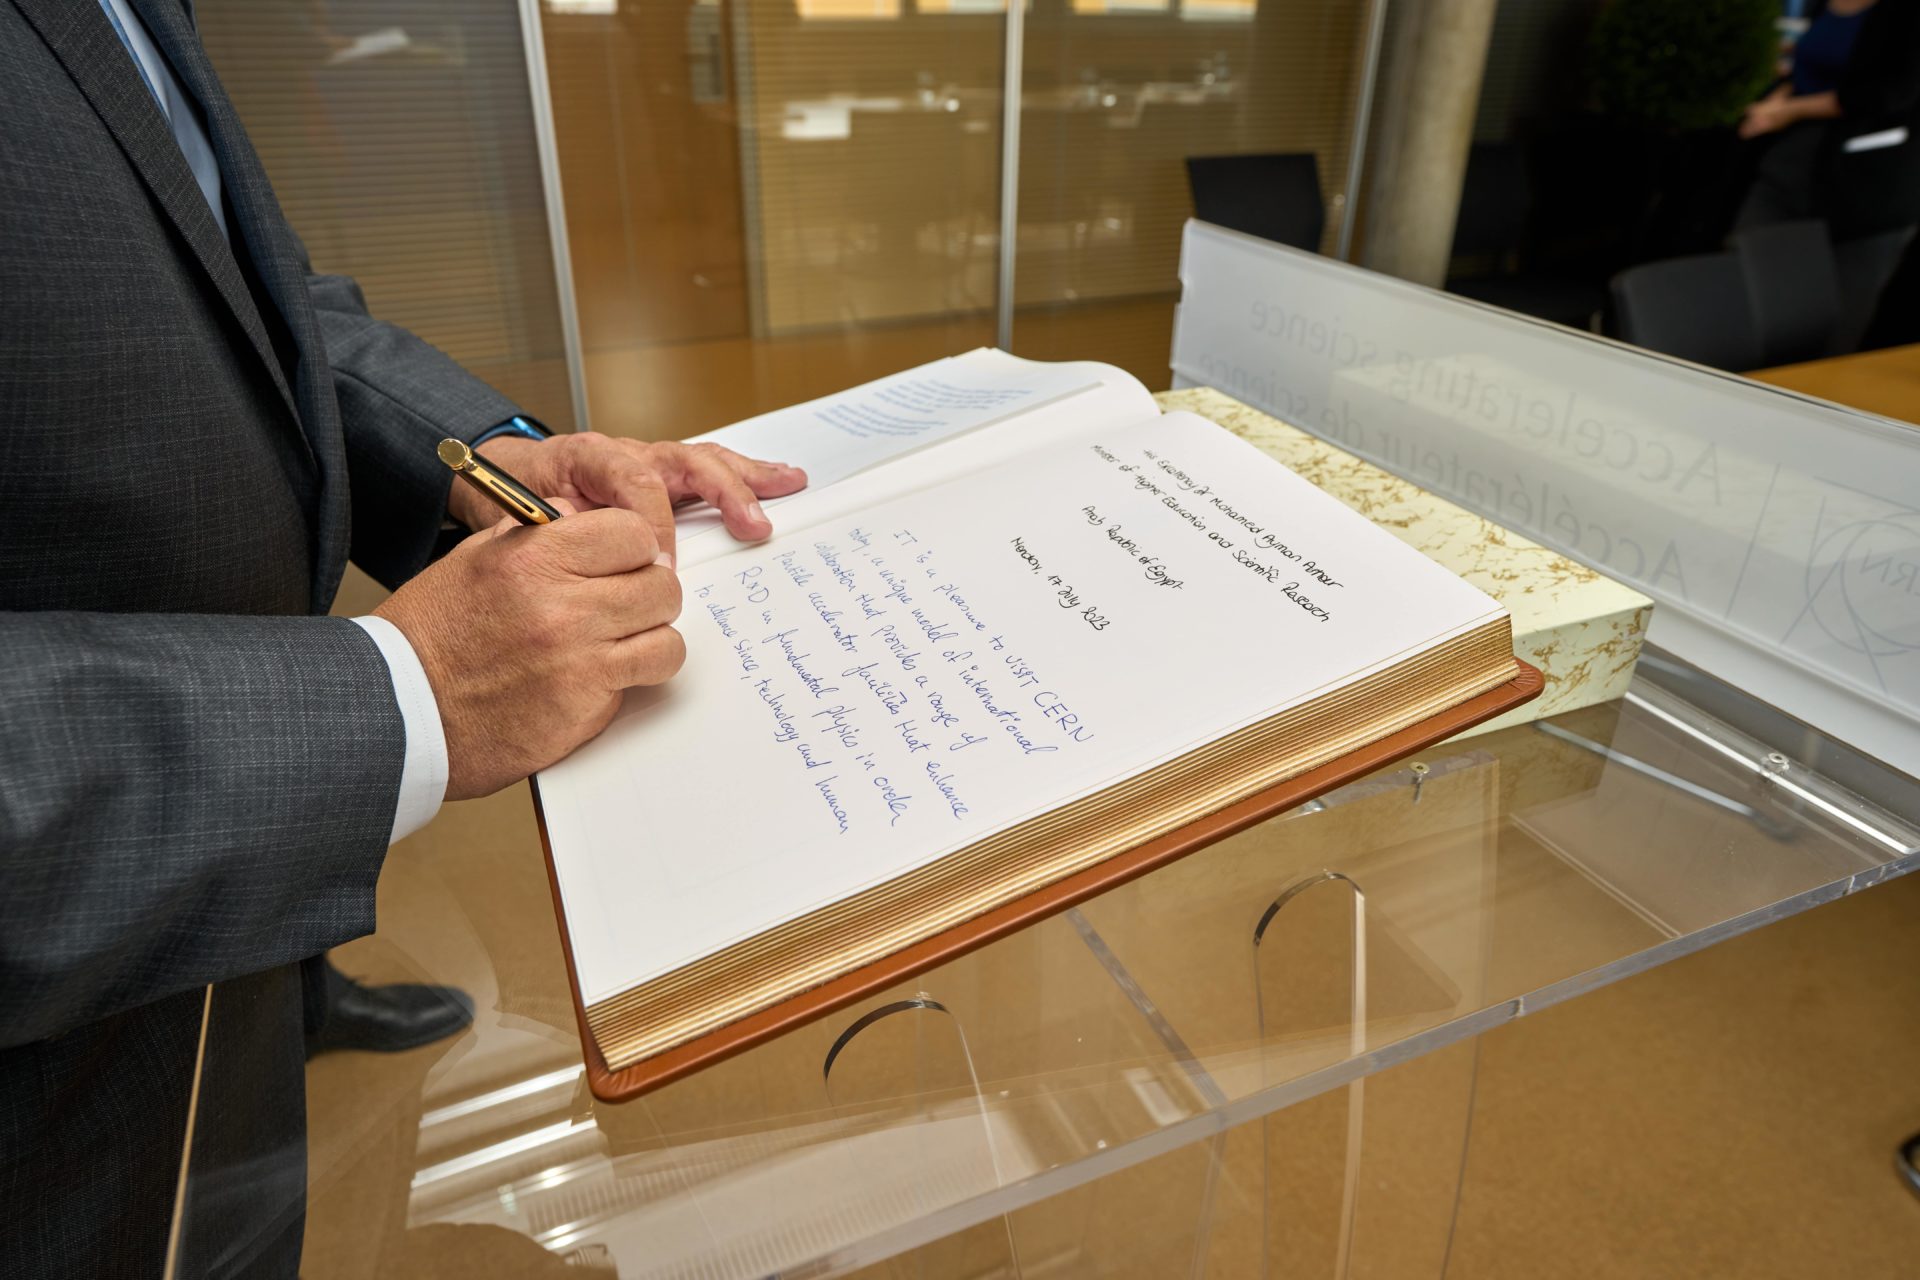 His Excellency Dr Mohamed Ayman Ashour
Minister of Higher Education and Scientific Research
Arab Republic of Egypt
Monday, 17 July 2023
IT is a pleasure to visit CERN
today, a unique model of international
collaboration that provides a range of
particle accelerator facilities that enhance
R&D in fundamental physics in order
to advance since, technology and human
Accelerating science
Accélérateur de science
CERN